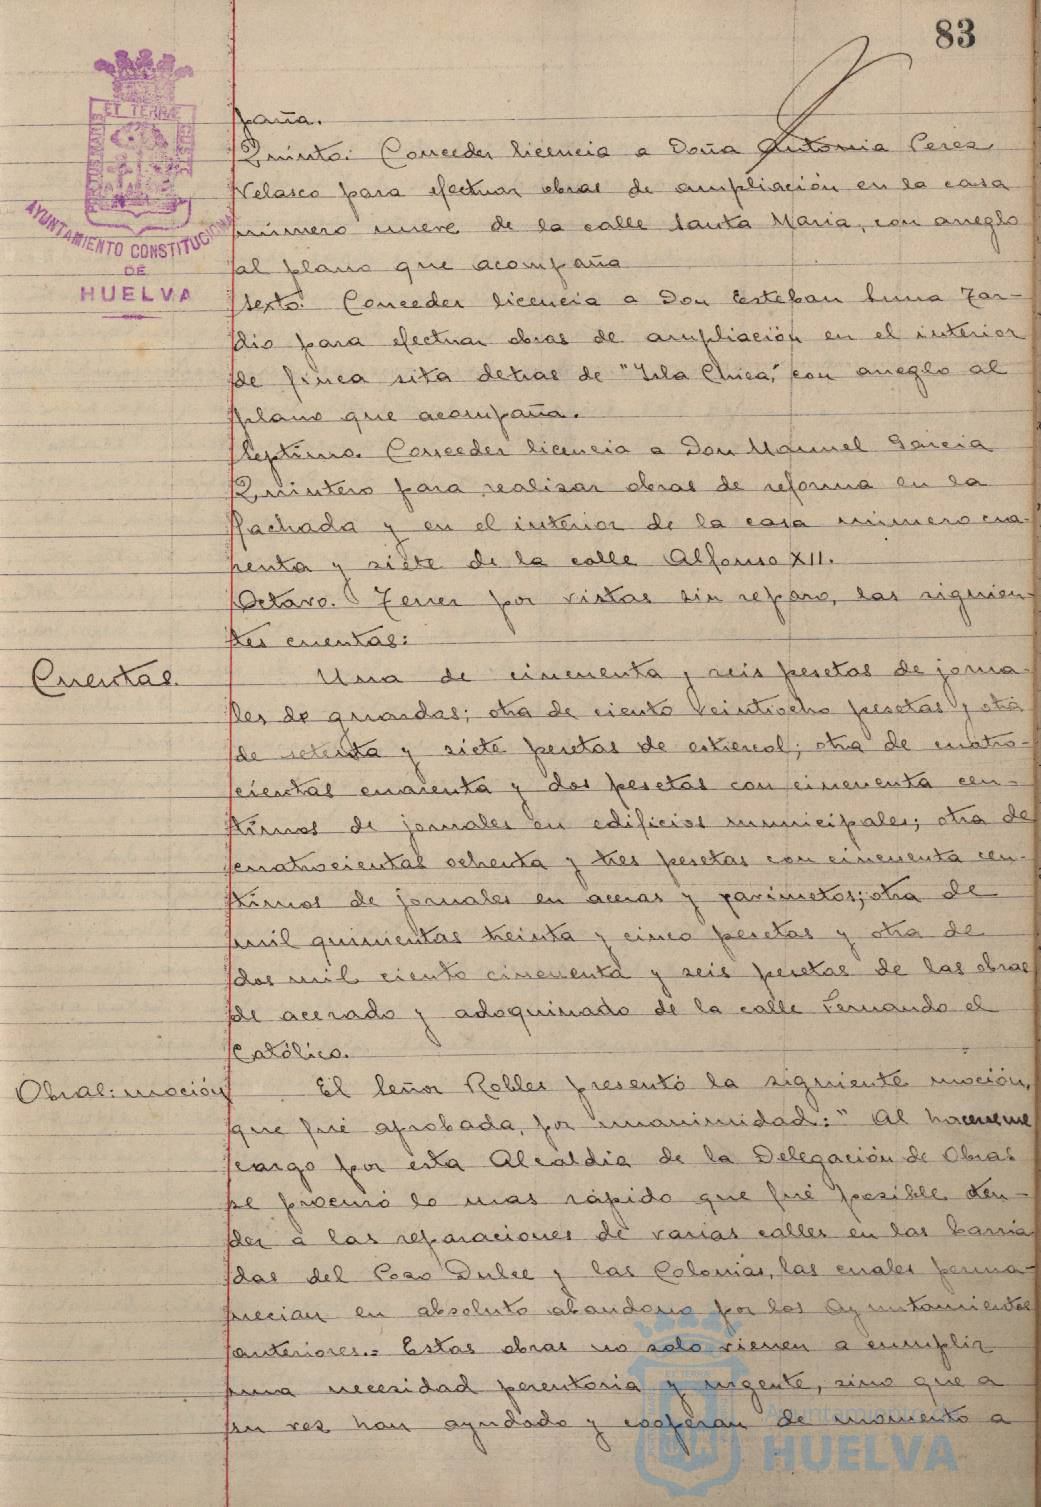 83
ET TERRÆ
AYUNTAMIENTO CONSTITUCIONAL
DE
HUELVA
paña.
Quinto: Conceder licencia a Doña Antonia Perez
Velasco para efectuar obras de ampliación en la casa
número nueve de la calle Santa Maria, con arreglo
al plano que acompaña
Sexto: Conceder licencia a Don Esteban Luna Zar-
dio para efectuar obras de ampliación en el interior
de finca sita detras de "Isla Chica," con arreglo al
plano que acompaña.
Septimo. Conceder licencia a Don Manuel Garcia
Quintero para realizar obras de reforma en la
fachada y en el interior de la casa número cua-
renta y siete de la calle Alfonso XII.
Octavo. Tener por vistas sin reparo, las siguien-
tes cuentas:
Cuentas. Una de cincuenta y seis pesetas de jorna-
les de guardas; otra de ciento veintiocho pesetas y otra
de setenta y siete pesetas de estiercol; otra de cuatro-
cientas cuarenta y dos pesetas con cincuenta cen-
timos de jornales en edificios municipales; otra de
cuatrocientas ochenta y tres pesetas con cincuenta cen-
timos de jornales en aceras y pavimetos; otra de
mil quinientas treinta y cinco pesetas y otra de
dos mil ciento cincuenta y seis pesetas de las obras
de acerado y adoquinado de la calle Fernando el
Católico.
Obras: moción El Señor Robles presentó la siguiente moción,
que fué aprobada, por unanimidad: " Al hacerme
cargo por esta Alcaldia de la Delegación de Obras
se procuró lo mas rápido que fué posible aten-
der a las reparaciones de varias calles en las barria
das del Pozo Dulce y las Colonias, las cuales perma-
necian en absoluto abandono por los Ayuntamientos
anteriores.= Estas obras no solo vienen a cumplir
una necesidad perentoria y urgente, sino que a
su vez han ayudado y cooperan de momento a
Ayuntamiento de
HUELVA